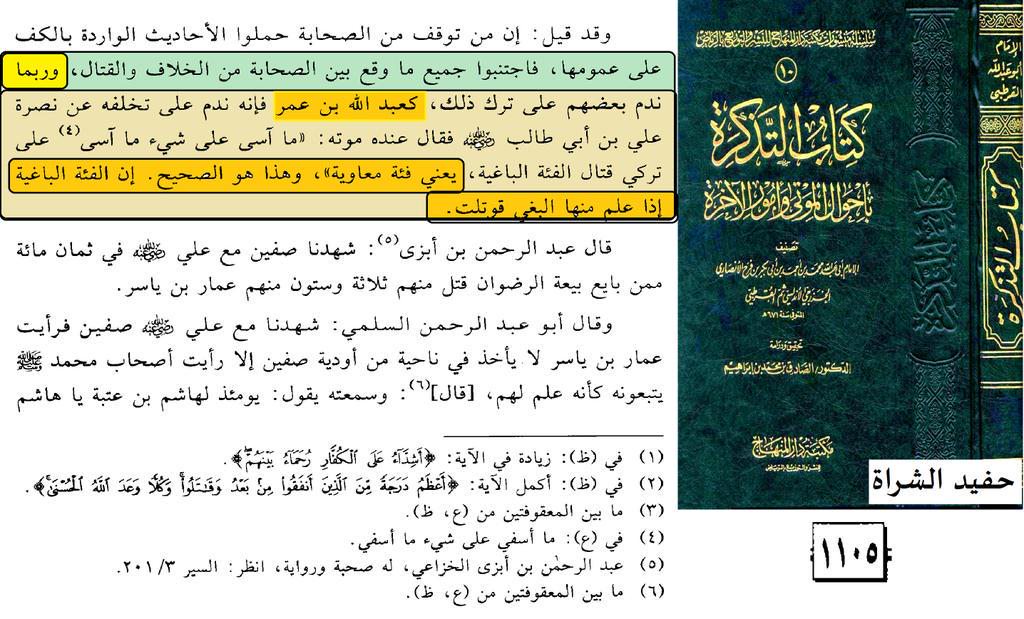 وقد قيل: إن من توقف من الصحابة حملوا الأحاديث الواردة بالكف
على عمومها، فاجتنبوا جميع ما وقع بين الصحابة من الخلاف والقتال، وربما
ندم بعضهم على ترك ذلك، كعبد الله بن عمر فإنه ندم على تخلفه عن نصرة
علي بن أبي طالب ﵁ فقال عنده موته: «ما آسى على شيء ما آسى(٤) على
تركي قتال الفئة الباغية، يعني فئة معاوية»، وهذا هو الصحيح. إن الفئة الباغية
إذا علم منها البغي قوتلت.
قال عبد الرحمن بن أبزى(٥): شهدنا صفين مع علي ﵁ في ثمان مائة
ممن بايع بيعة الرضوان قتل منهم ثلاثة وستون منهم عمار بن ياسر.
وقال أبو عبد الرحمن السلمي: شهدنا مع علي ﵁ صفين فرأيت
عمار بن ياسر لا يأخذ في ناحية من أودية صفين إلا رأيت أصحاب محمد ﷺ
يتبعونه كأنه علم لهم، [قال](٦): وسمعته يقول: يومئذ لهاشم بن عتبة يا هاشم
(١) في (ظ): زيادة في الآية: ﴿أَشِدَّآءُ عَلَى ٱلْكُفَّارِ رُحَمَآءُ بَيْنَهُمْ﴾.
(٢) في (ظ): أكمل الآية: ﴿أَعْظَمُ دَرَجَةً مِّنَ ٱلَّذِينَ أَنفَقُوا۟ مِنۢ بَعْدُ وَقَٰتَلُوا۟ وَكُلًّا وَعَدَ ٱللَّهُ ٱلْحُسْنَىٰ﴾.
(٣) ما بين المعقوفتين من (ع، ظ).
(٤) في (ع): ما أسفي على شيء ما أسفي.
(٥) عبد الرحمٰن بن أبزى الخزاعي، له صحبة ورواية، انظر: السير ٢٠١/٣.
(٦) ما بين المعقوفتين من (ع، ظ).
سلسلة منشورات مكتبة دار المنهاج للنشر والتوزيع بالرياض
١٠
كتاب التذكرة
بأحوال الموتى وأمور الآخرة
تصنيف
الإمام أبي عبد الله محمد بن أحمد بن أبي بكر بن فرح الأنصاري
الخزرجي الأندلسي ثم القرطبي
المتوفى سنة ٦٧١هـ
تحقيق ودراسة
الدكتور/ الصادق بن محمد بن إبراهيم
مكتبة دار المنهاج
للنشر والتوزيع بالرياض
الإمام
أبو عبد الله
القرطبي
كتاب التذكرة
حفيد الشراة
١١٠٥